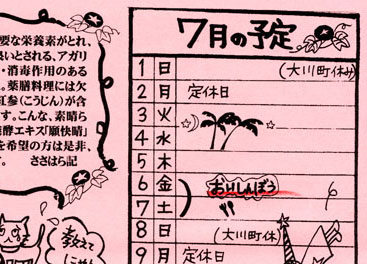 要な栄養素がとれ、
良いとされる、アガリ
・消毒作用のある
。薬膳料理には欠
紅参(こうじん)が含
す。こんな、素晴ら
酵エキス「願快晴」
を希望の方は是非、
す。 ささはら記
教えて
7月の予定
1 日 (大川町休み)
2 月 定休日
3 火
4 水
5 木
6 金 おいしんぼう
7 土
8 日 (大川町休)
9 月 定休日